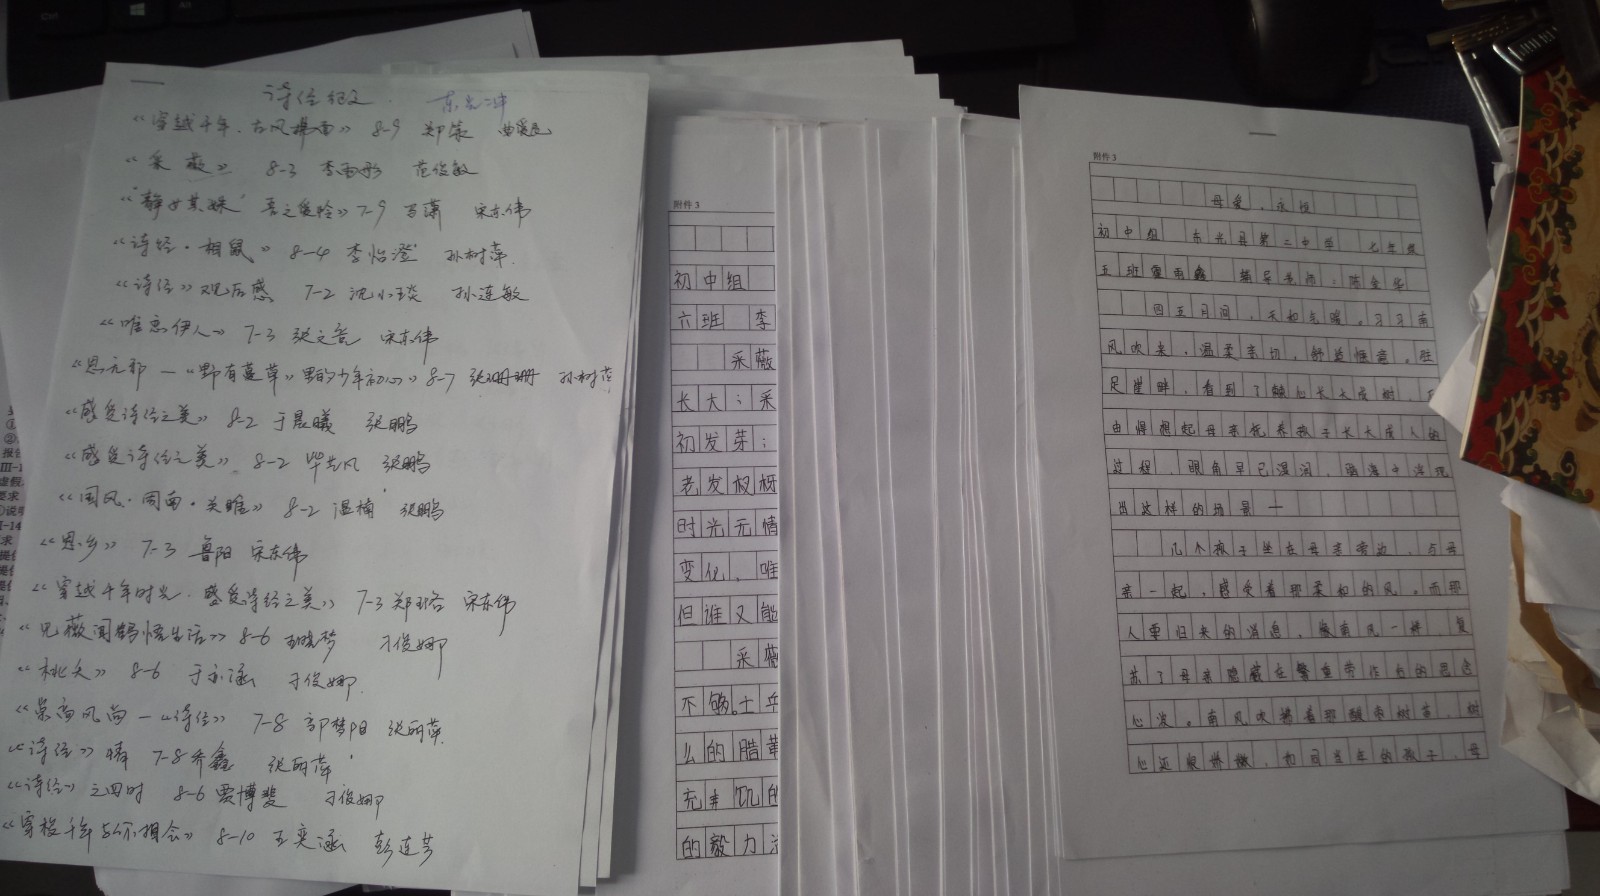 诗经征文 东光二中
《穿越千年·古风拂面》 8-9 郑策
《采薇》 8-3 李雨彤 范俊敏
《“静女其姝”吾之爱怜》 7-9 马潇 宋东伟
《诗经·相鼠》 8-4 李怡澄 孙树萍
《诗经》观后感 7-2 沈小琰 孙连敏
《唯恋伊人》 7-3 张文 宋东伟
《思无邪—《野有蔓草》里的少年初心》 8-7 张珊珊 孙树萍
《感受诗经之美》 8-2 于晨曦 张鹏
《感受诗经之美》 8-2 毕 风 张鹏
《国风·周南·关雎》 8-2 温楠 张鹏
《思乡》 7-3 鲁阳 宋东伟
《穿越千年时光·感受诗经之美》 7-3 郑 宋东伟
《见薇闻鹤悟生活》 8-6 梦 于俊娜
《桃夭》 8-6 于 涵 于俊娜
《崇高风尚—《诗经》 7-8 郭梦阳 张丽萍
《诗经》情 7-8 乔鑫 张丽萍
《诗经》之四时 8-6 贾博斐 于俊娜
《穿梭千年与你相会》 8-10 王奕涵 彭连芳
附件3
初中组
六班 李
采薇
长大；采
初发芽；
老发杈枒
时光无情
变化，唯
但谁又能
采薇
不够。士兵
么的腊黄
充丰饥的
的毅力
附件3
母爱，永恒
初中组 东光县第二中学 七年级
五班 雨鑫 辅导老师：陈金华
四五月间，天和气暖。习习南
风吹来，温柔亲切，舒适惬意。驻
足崖畔，看到了棘心长大成树，不
由得想起母亲抚养孩子长大成人的
过程，眼角早已湿润，脑海中浮现
出这样的场景—
几个孩子坐在母亲旁边，与母
亲一起，感受着那柔和的风。而那
人要归来的消息，像南风一样，复
苏了母亲隐藏在繁重劳作后的思念
心波。南风吹拂着那酸枣树苗，树
心还很娇嫩，如同当年的孩子，母